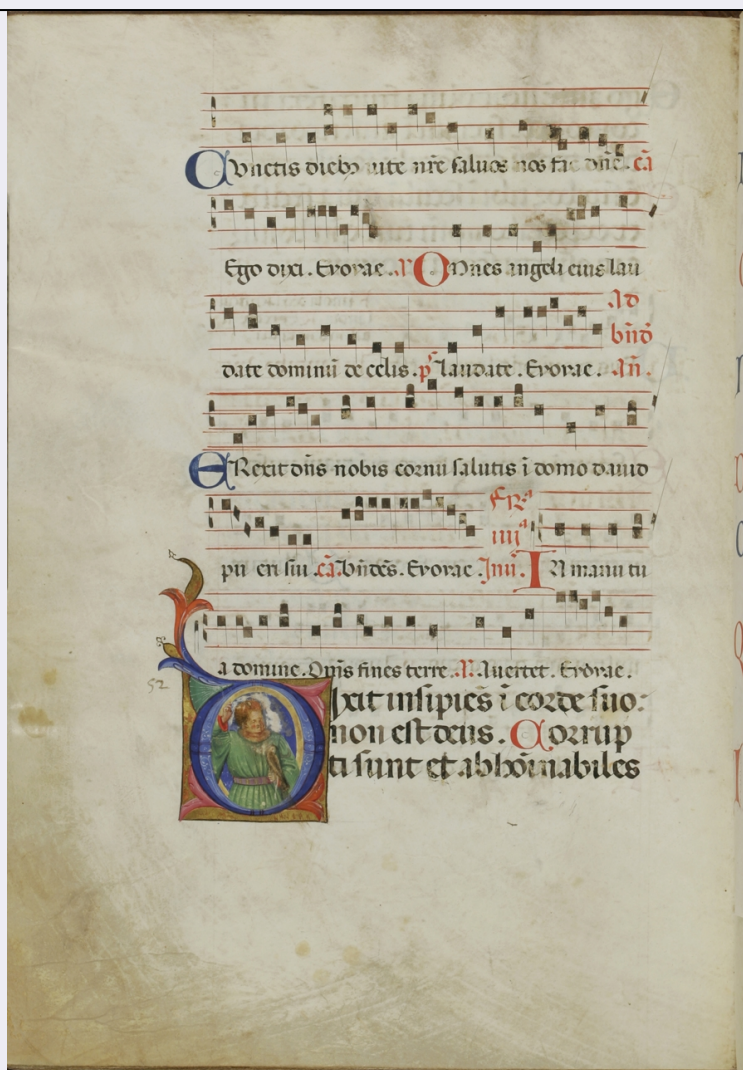 Cunctis dieb⁹ uite nr̄e saluos nos fac dn̄e. cā
Ego dixi. Evovae. A Omnes angeli eius lau
Ad
bn̄d
date dominū de celis. ps̄ laudate. Evovae. An̄.
Erexit dn̄s nobis cornu salutis ī domo dauid
Fr̄ᵃ
iiiiᵃ
pu eri sui. cā. bn̄dc̄s. Evovae Inui. In manu tu
a domine. Om̄s fines terre. A. Auertet. Evovae.
52
Dixit insipiēs ī corde suo:
non est deus. Corrup
ti sunt et abhoīnabiles